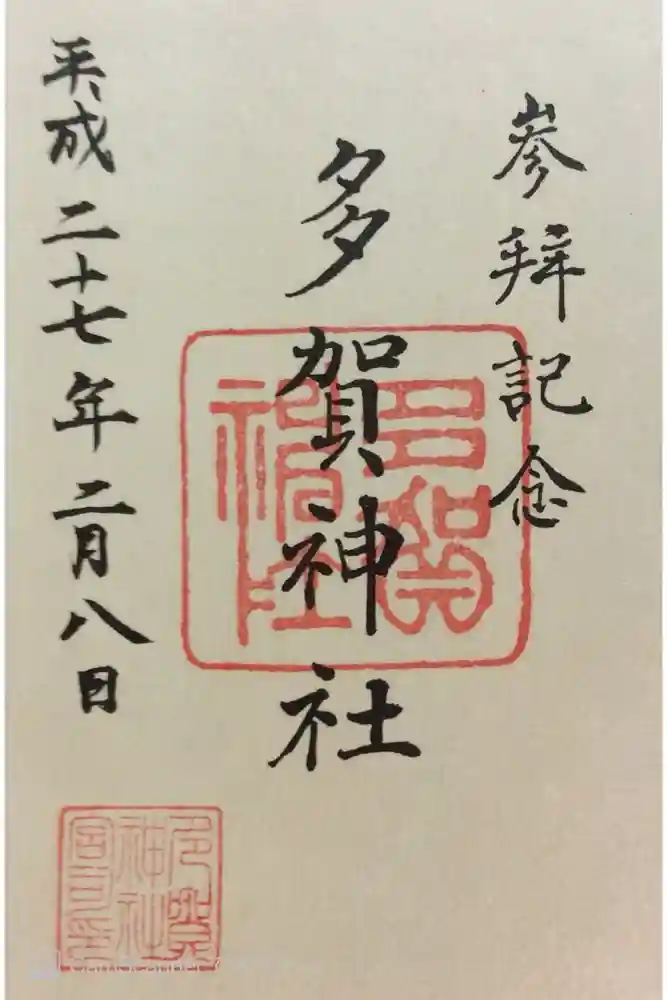 参拜記念
多賀神社
平成二十七年二月八日
多賀神社